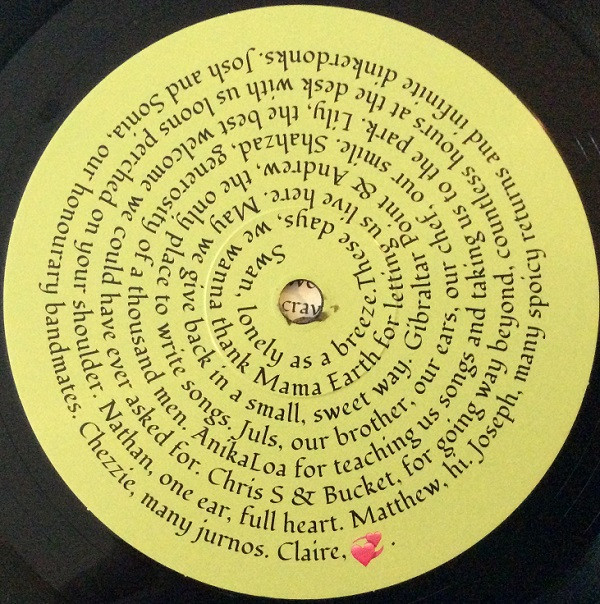 Swan, lonely as a breeze.These days, we wanna thank Mama Earth for letting us live here. May we give back in a small, sweet way. Gibraltar Point & Andrew, the only place to write songs. Juls, our brother, our ears, our chef, our smile. Shahzad, generosity of a thousand men. AnikaLoa for teaching us songs and taking us to the park. Lily, the best welcome we could have ever asked for. Chris S & Bucket, for going way beyond, countless hours at the desk with us loons perched on your shoulder. Nathan, one ear, full heart. Matthew, hi. Joseph, many spoicy returns and infinite dinkerdonks. Josh and Sonia, our honourary bandmates. Chezzie, many jurnos. Claire, 💞.
crav